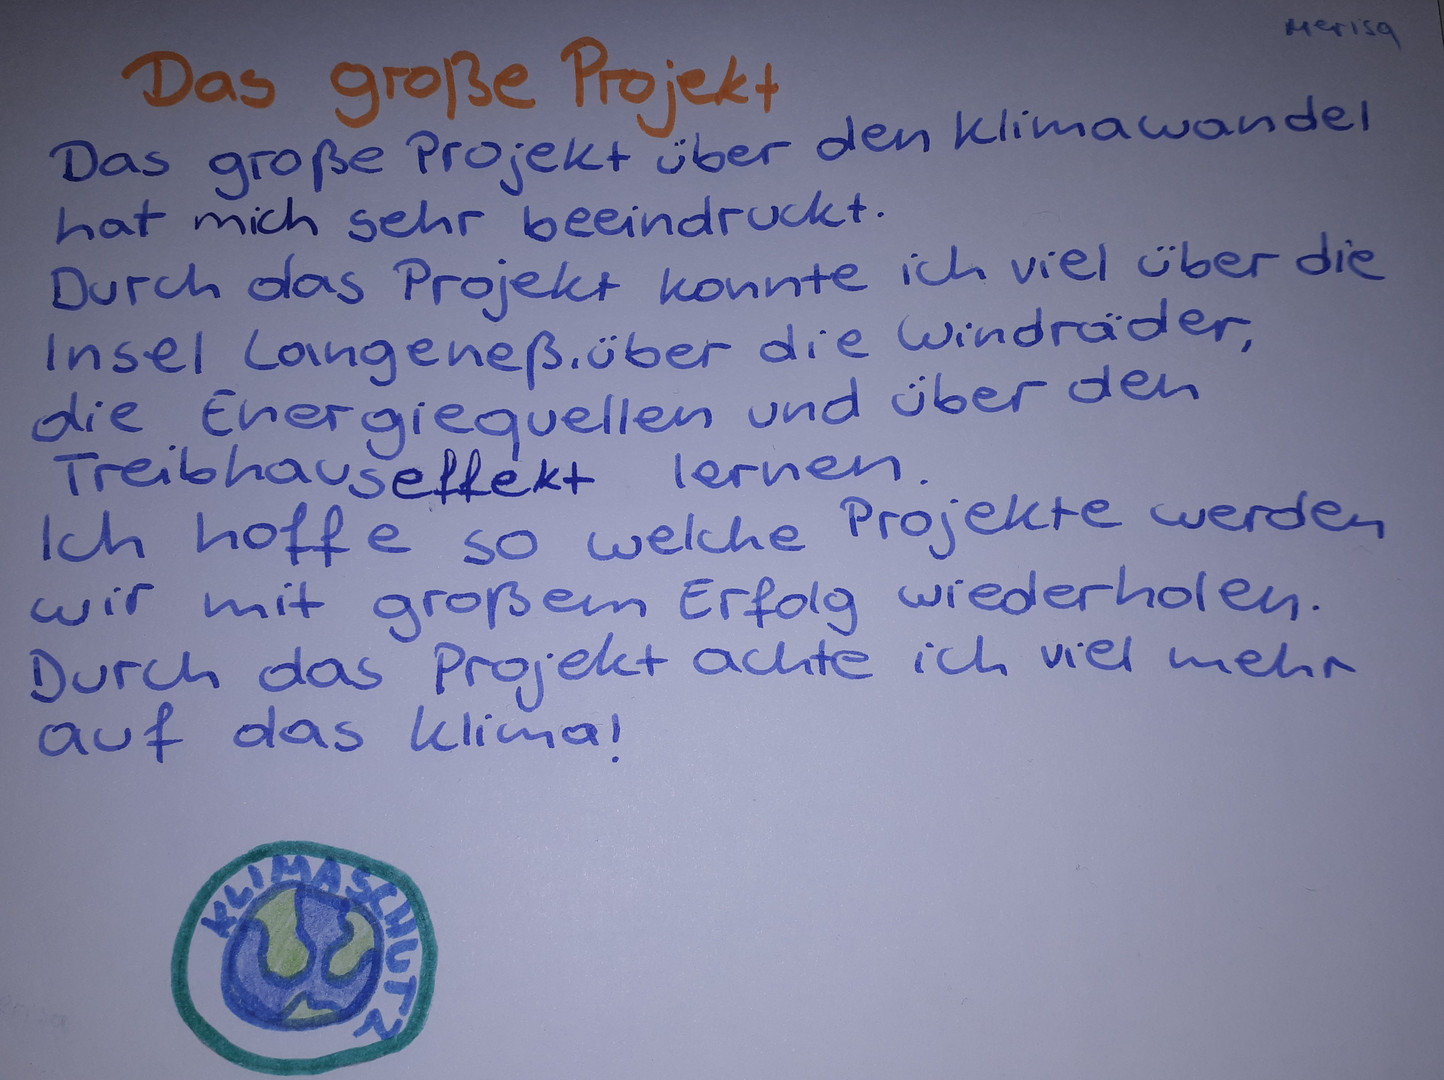 Merisa
Das große Projekt
Das große Projekt über den Klimawandel
hat mich sehr beeindruckt.
Durch das Projekt konnte ich viel über die
Insel Langeneß.über die Windräder,
die Energiequellen und über den
Treibhauseffekt lernen.
Ich hoffe so welche Projekte werden
wir mit großem Erfolg wiederholen.
Durch das Projekt achte ich viel mehr
auf das Klima!
KLIMASCHUTZ